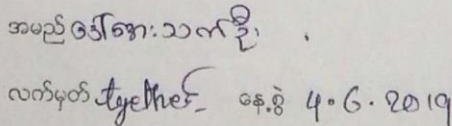 အမည် ဒေါ်အေးသက်ဦး
လက်မှတ် နေ့စွဲ 4.6.2019